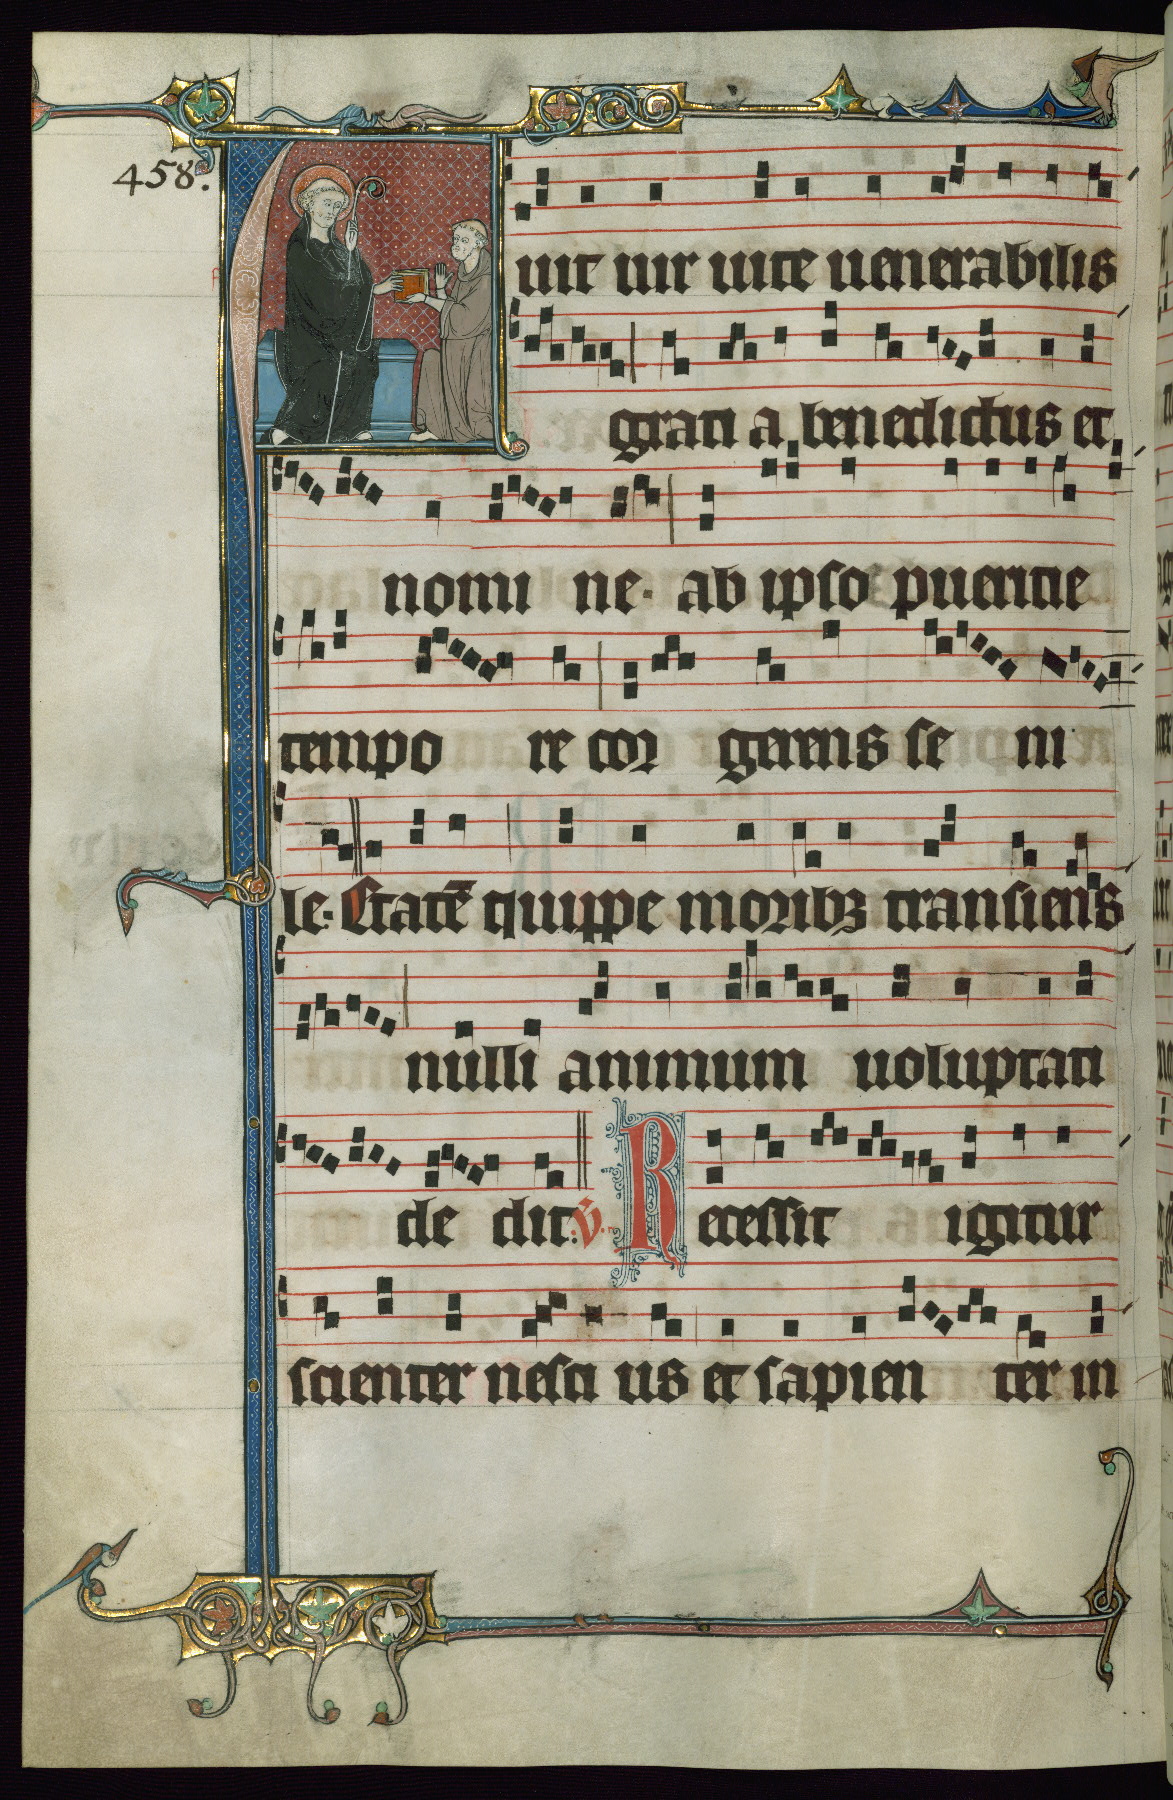 458.
Fuit uir uite uenerabilis
grati a benedictus et
nomi ne. ab ipso pueritie
tempo re cor gerens se ni
le. Etatē quippe moribꝫ transiens
nulli animum uoluptati
de dit. v̄. Recessit igitur
scienter nesci us et sapien ter in